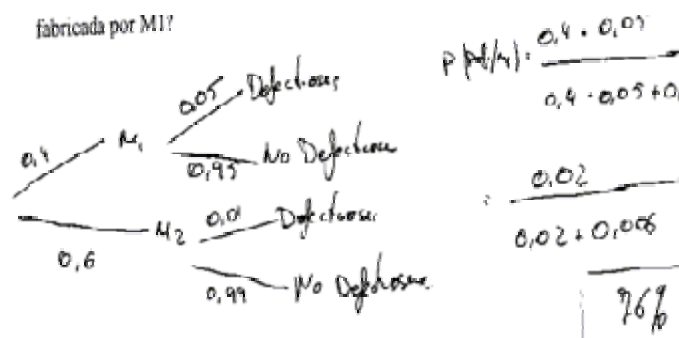 fabricada por M1?
0,05 Defectiosa
0,4 M1
0,95 No Defectiosa
M2 0,01 Defectuosa
0,6
0,99 No Defectuosa
0,4 · 0,05
0,4 · 0,05 + 0,
= 0,02
0,02 + 0,006
76%